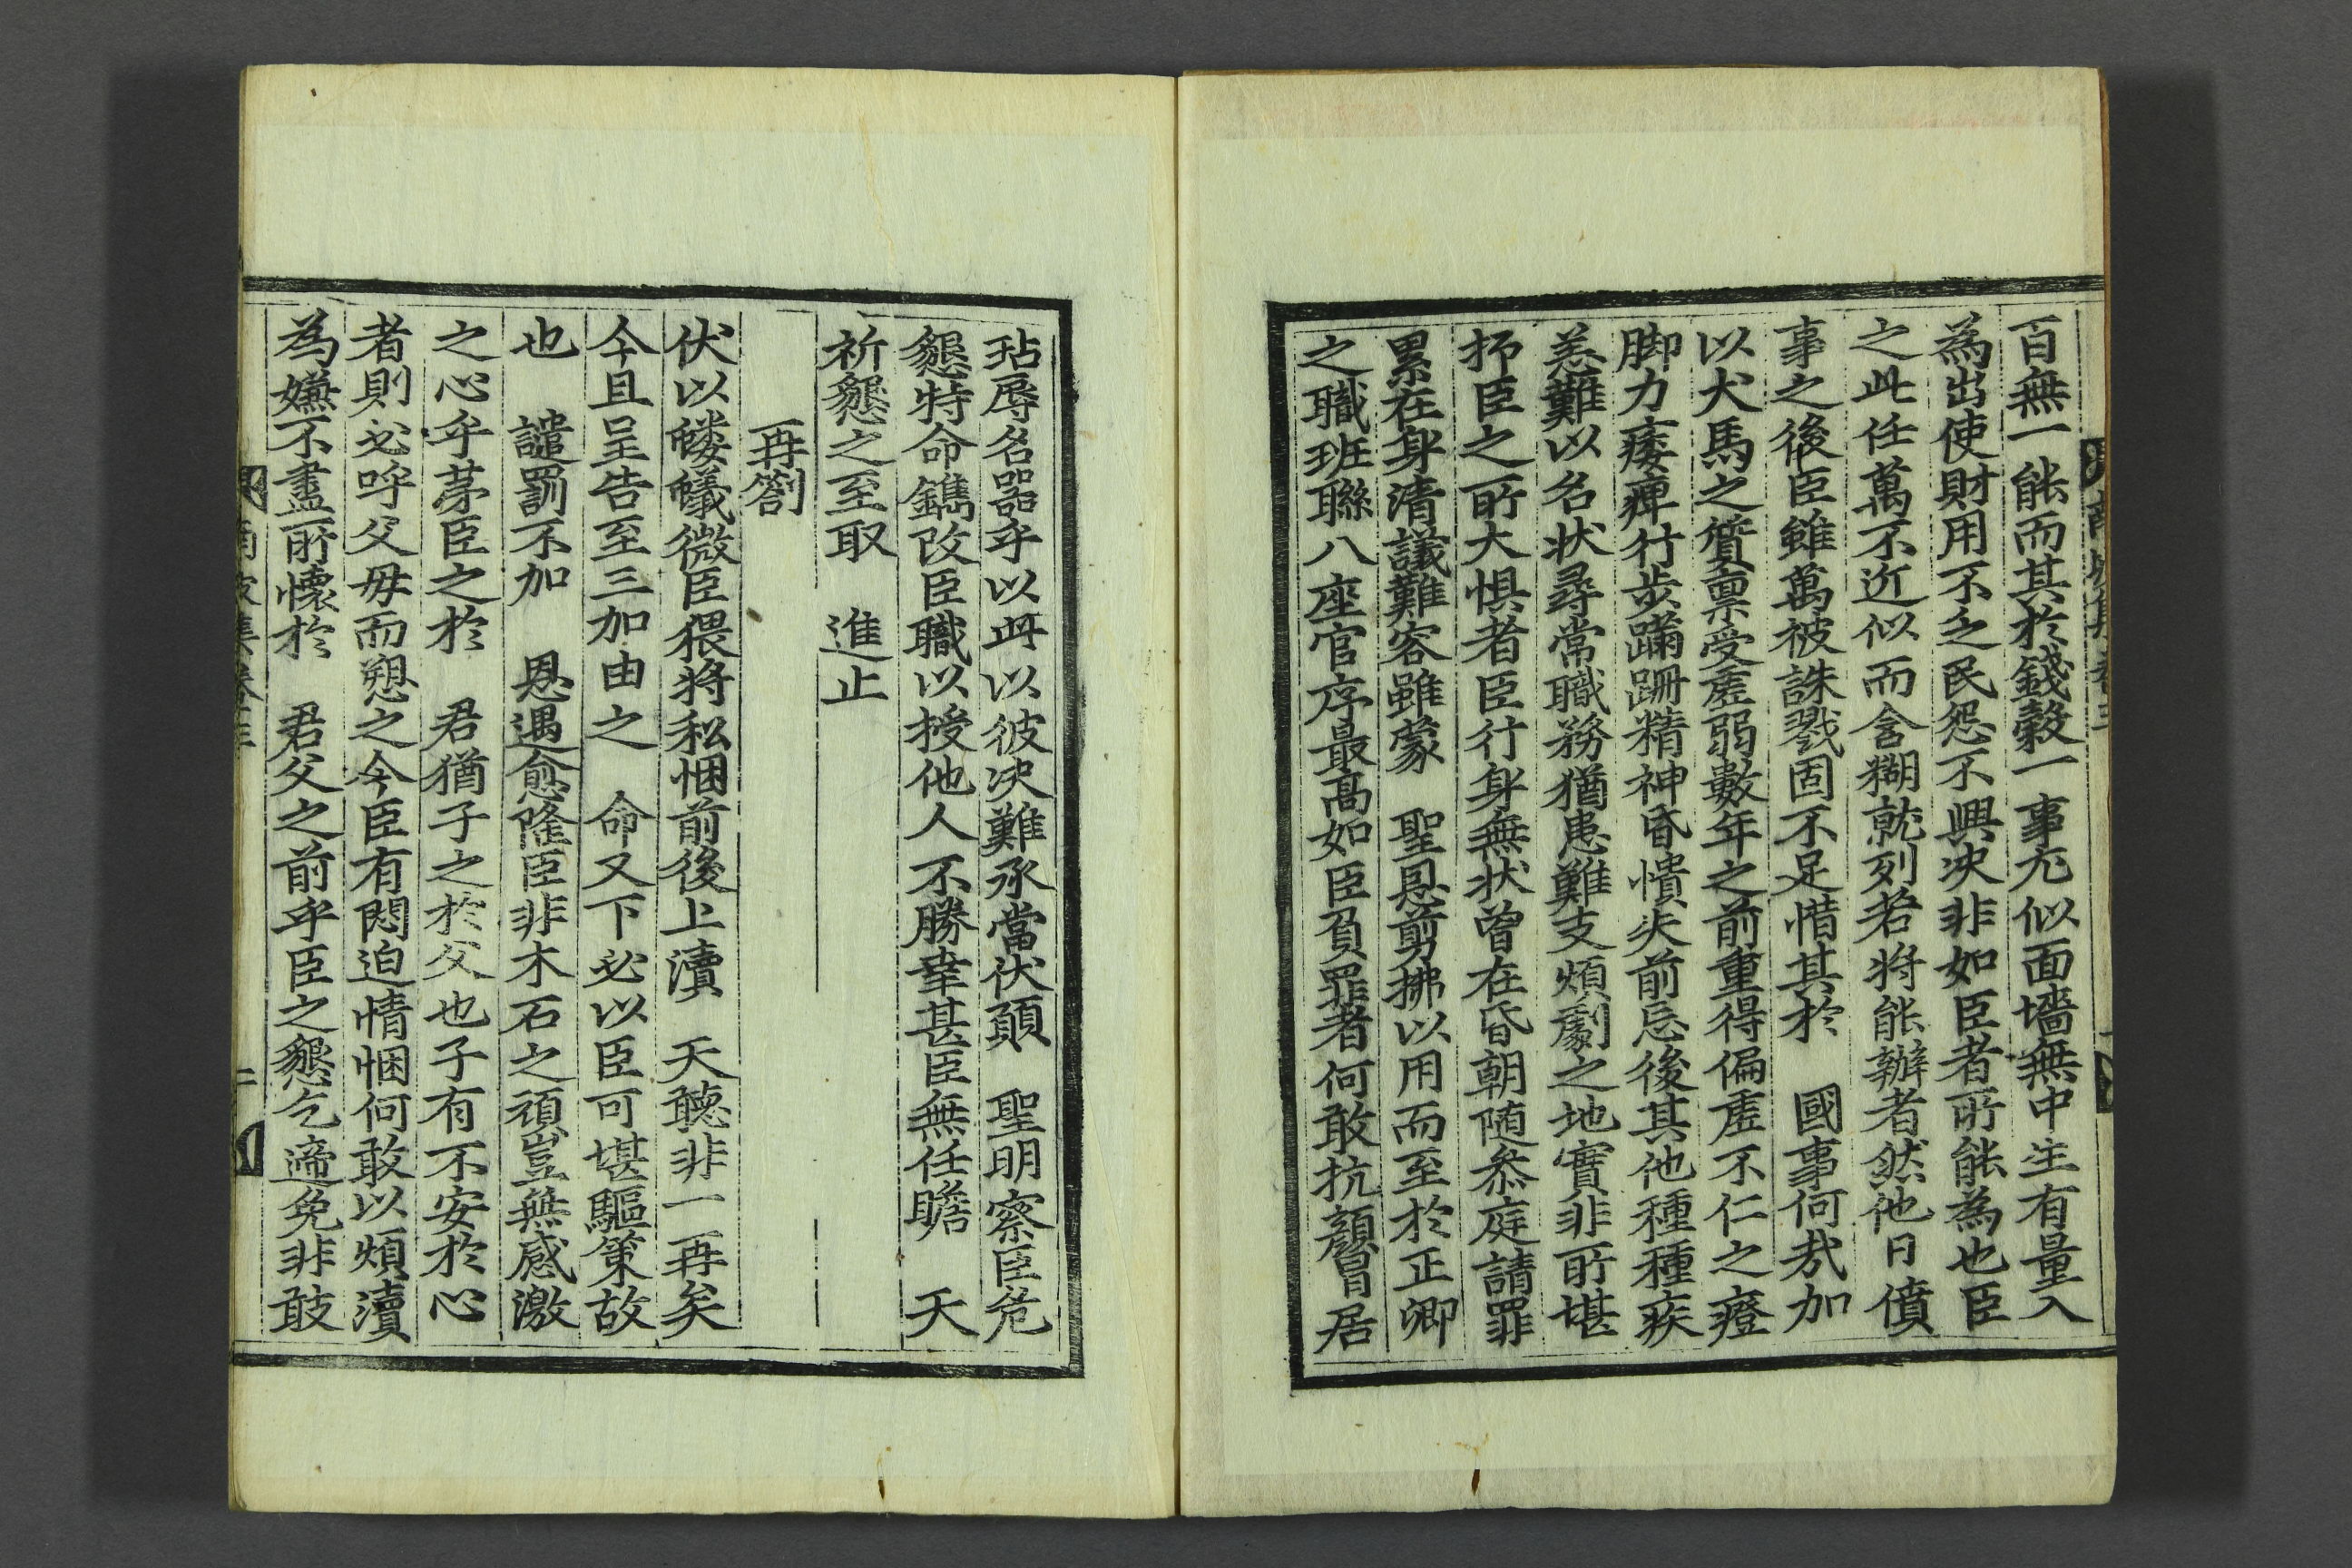 百無一能而其於錢穀一事尤似面墻無中生有量入
為出使財用不乏民怨不興决非如臣者所能為也臣
之此任萬不近似而含糊就列若將能辦者然他日僨
事之後臣雖萬被誅戮固不足惜其於 國事何㦲加
以犬馬之質禀受虛弱數年之前重得偏虛不仁之證
脚力痿痺行步蹣跚精神昏憒失前忘後其他種種疾
恙難以名状尋常職務猶患難支煩劇之地實非所堪
抑臣之所大惧者臣行身無状曾在昏朝随叅庭請罪
累在身清議難容雖蒙 聖恩剪拂以用而至於正卿
之職班聯八座官序最高如臣負罪者何敢抗顔冒居
玷辱名器乎以此以彼决難承當伏願 聖明察臣危
懇特命鐫改臣職以授他人不勝幸甚臣無任瞻 天
祈懇之至取 進止
再劄
伏以螻蟻微臣猥將私悃前後上瀆 天聽非一再矣
今且呈告至三加由之 命又下必以臣可堪驅策故
也 譴罰不加 恩遇愈隆臣非木石之頑豈無感激
之心乎苐臣之於 君猶子之於父也子有不安於心
者則必呼父毋而愬之今臣有悶迫情悃何敢以煩瀆
為嫌不盡所懷於 君父之前乎臣之懇乞遞免非敢